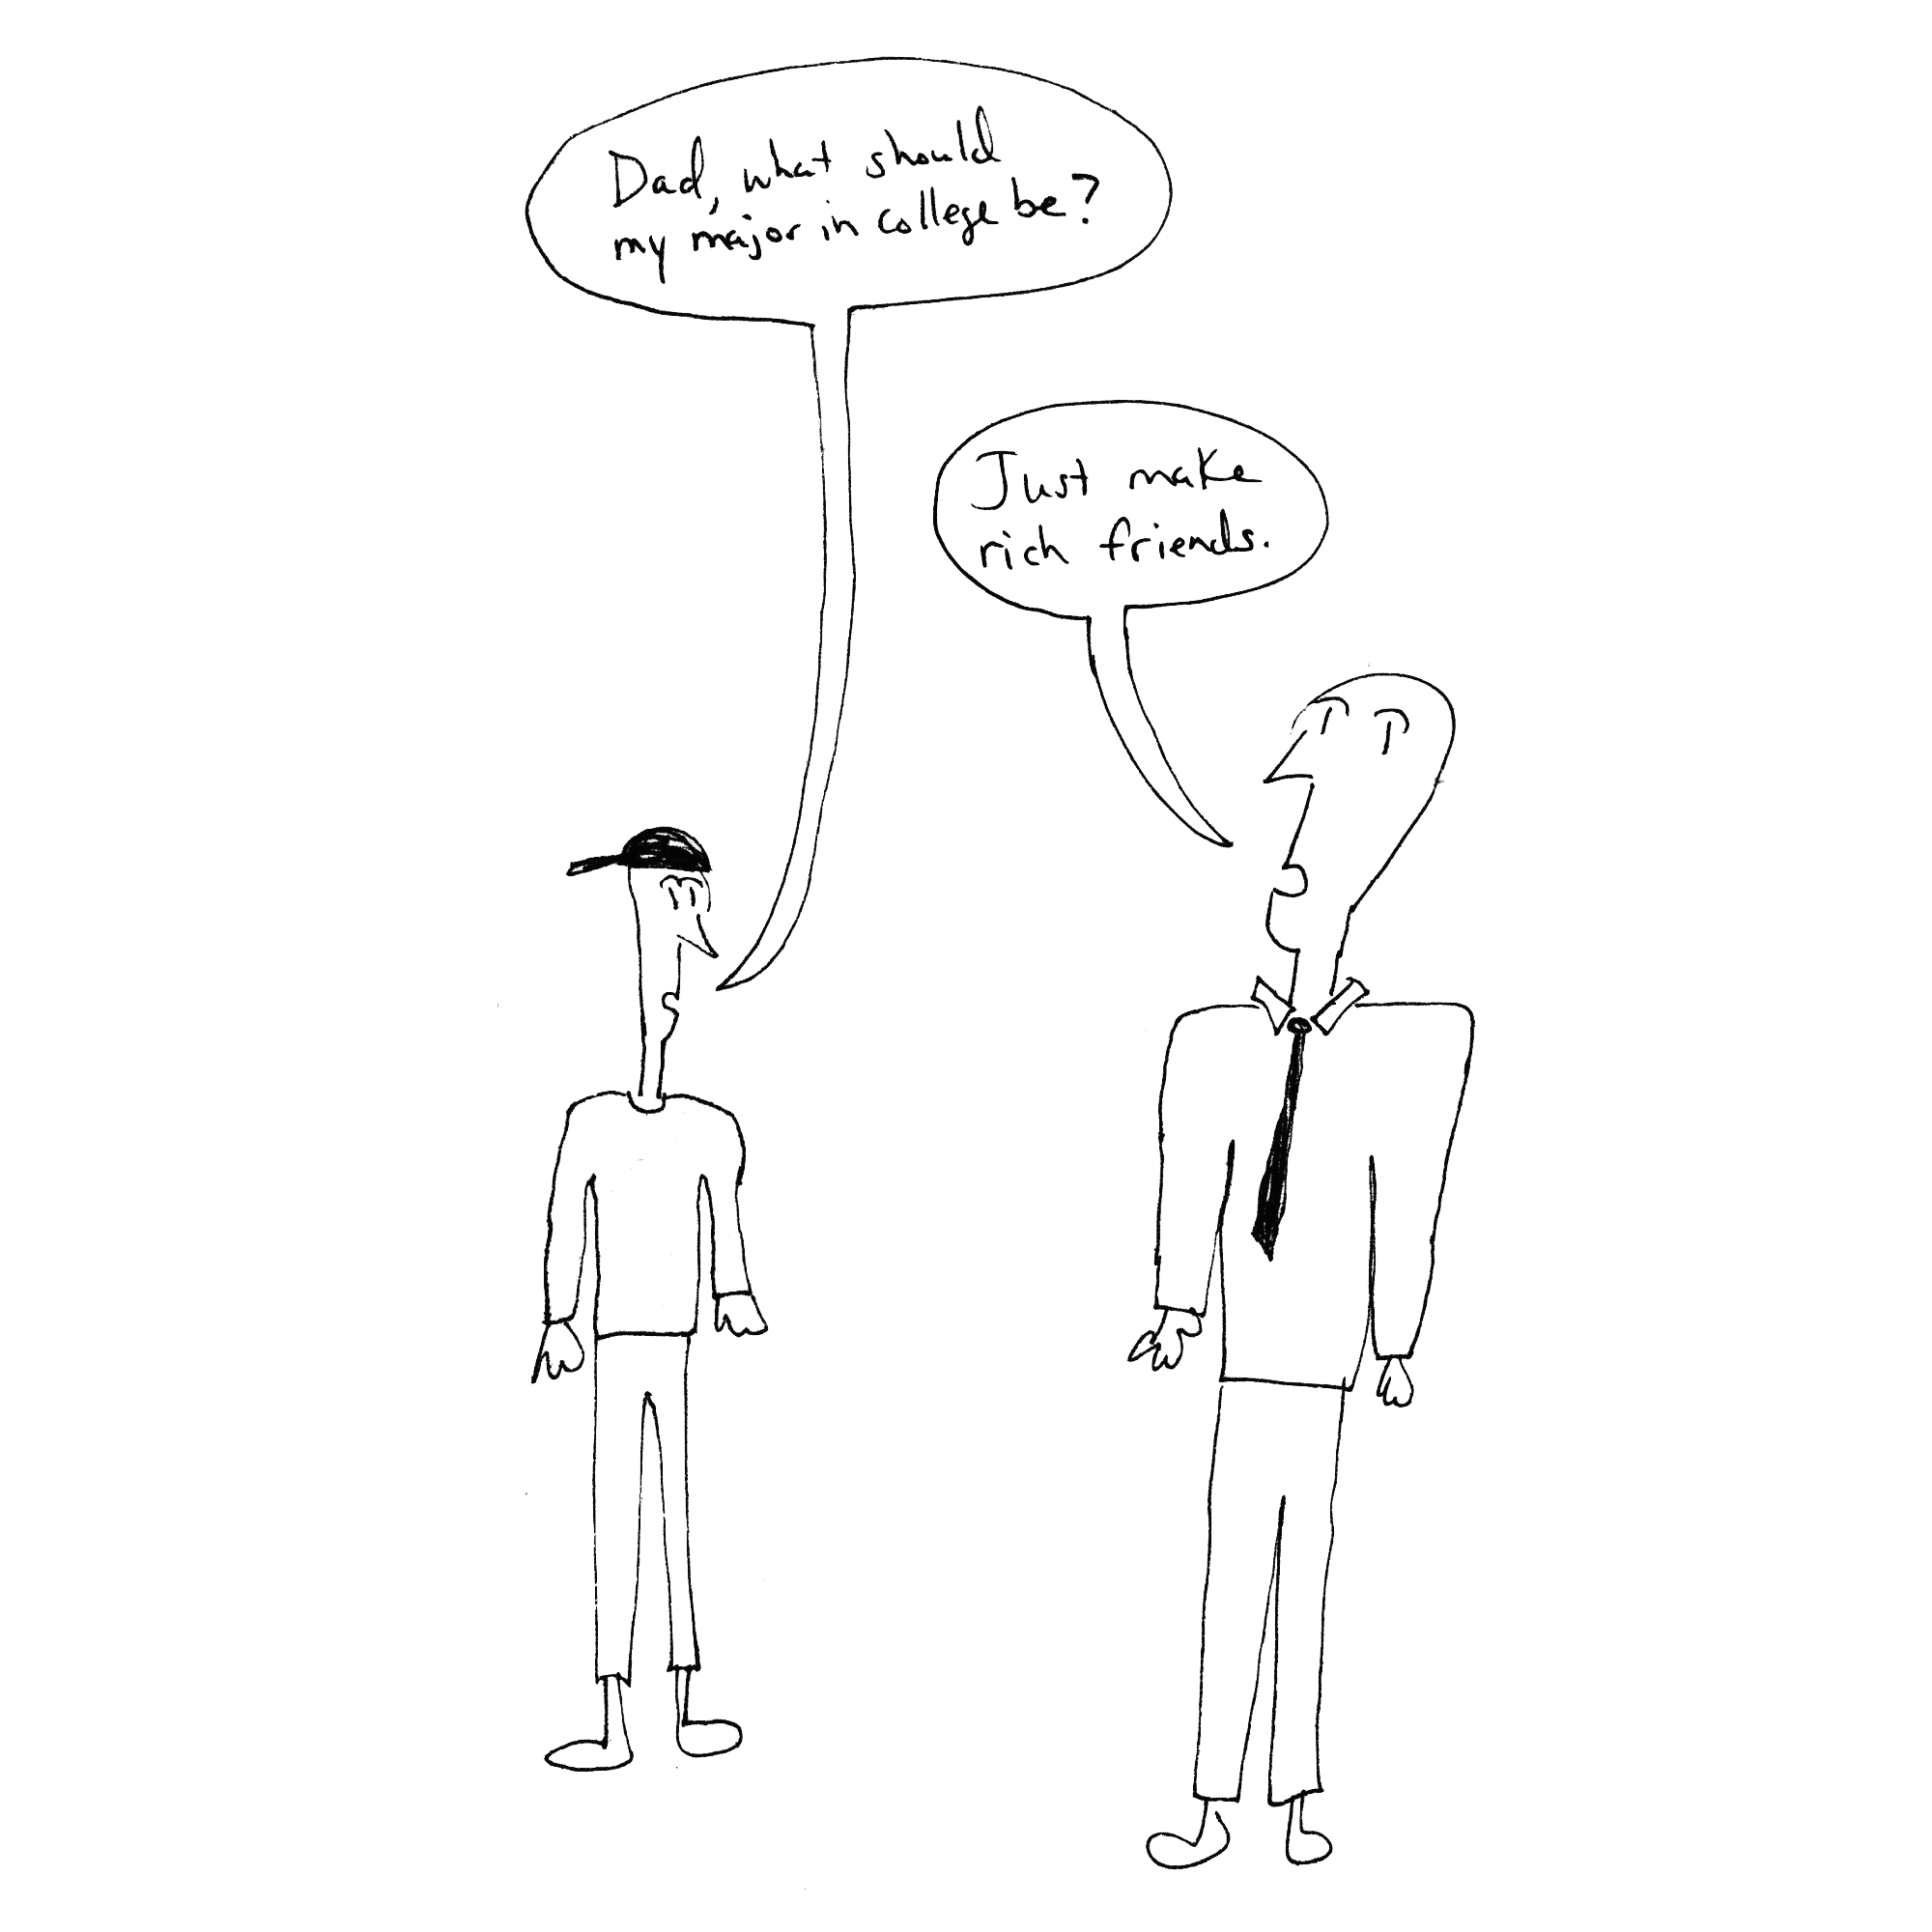 Dad, what should
my major in college be?
Just make
rich friends.